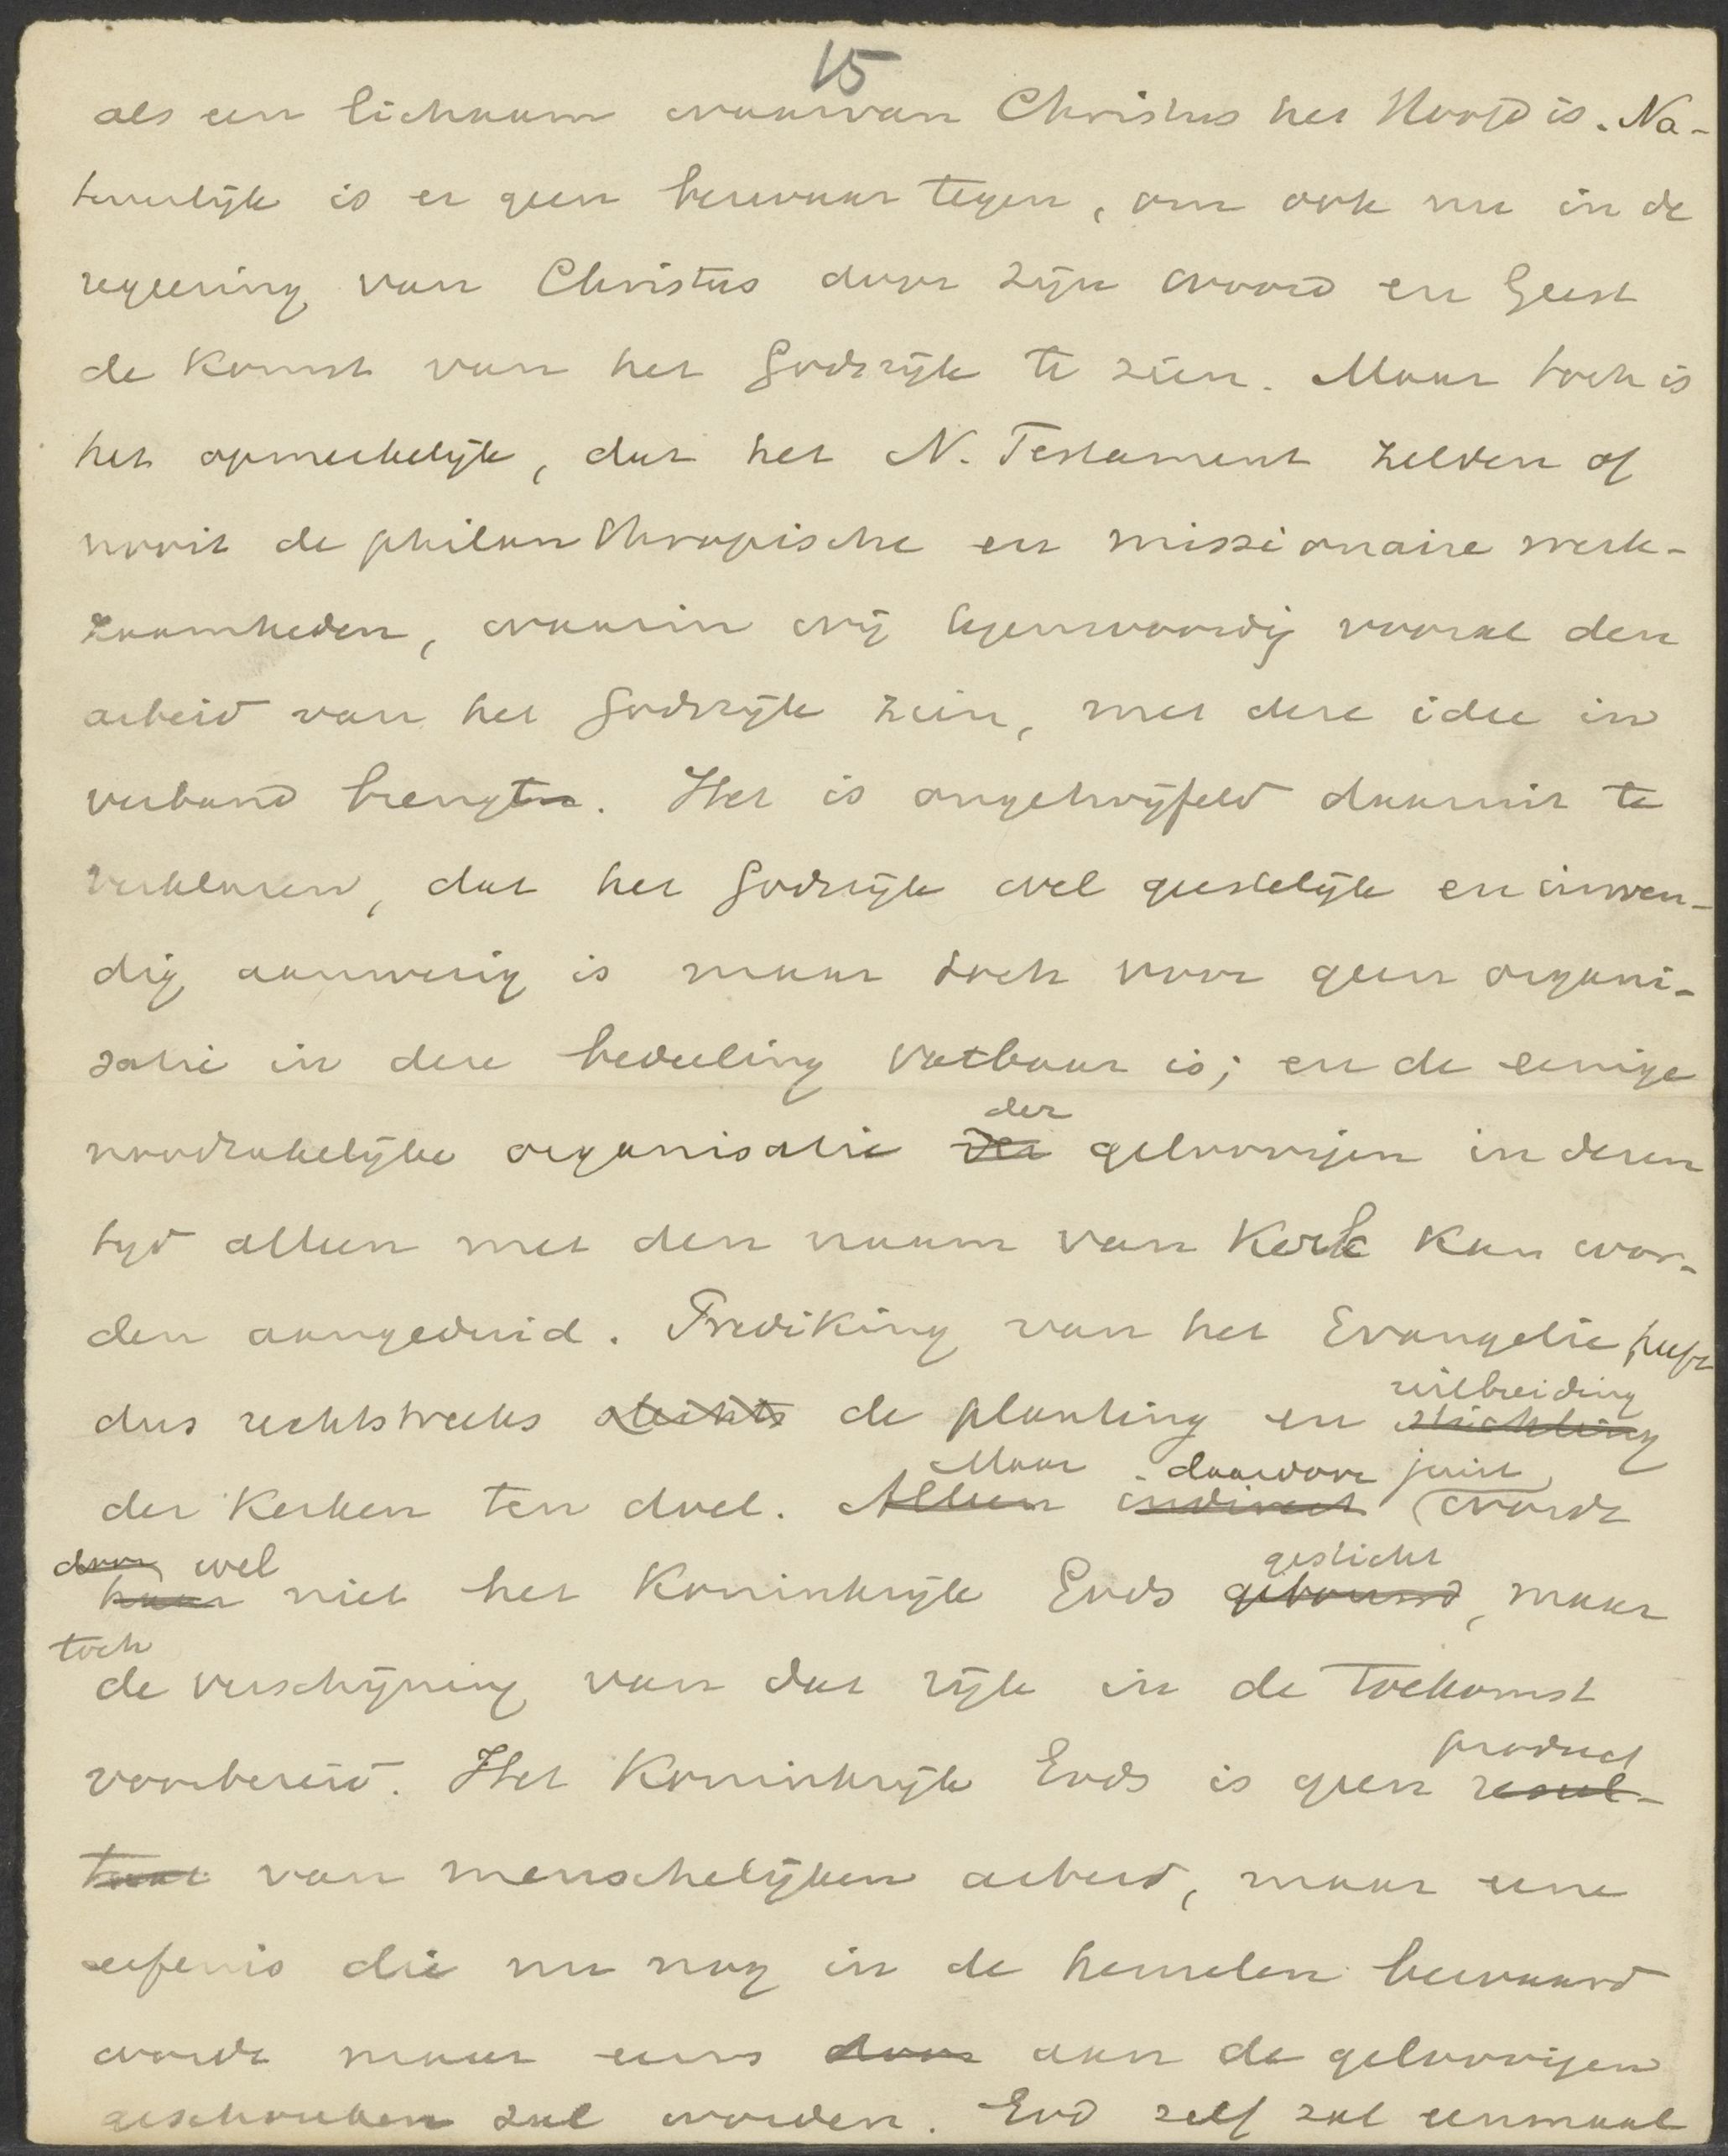 15
als een lichaam waarvan Christus het Hoofd is. Na-
tuurlijk is er geen bezwaar tegen, om ook nu in de
regeering van Christus door zijn woord en Geest
de komst van het Godsrijk te zien. Maar toch is
het opmerkelijk, dat het N. Testament zelden of
nooit de philanthropische en missionaire werk-
zaamheden, waarin wij tegenwoordig vooral den
arbeid van het Godsrijk zien, met deze idee in
verband brengt. Het is ongetwijfeld daaruit te
verklaren, dat het Godsrijk wel geestelijk en inwen-
dig aanwezig is maar toch voor geen organi-
satie in deze bedeeling vatbaar is; en de eenige
der
noodzakelijke organisatie der geloovigen in dezen
tijd alleen met den naam van Kerk kan wor-
den aangeduid. Prediking van het Evangelie heeft
uitbreiding
dus rechtstreeks slechts de planting en stichting
Maar daardoor juist
der Kerken ten doel. Alleen indirect wordt
door wel gesticht
haar niet het Koninkrijk Gods gebouwd, maar
toch
de verschijning van dat rijk in de toekomst
product
voorbereid. Het Koninkrijk Gods is geen resul-
taat van menschelijken arbeid, maar eene
erfenis die nu nog in de hemelen bewaard
wordt maar eens door aan de geloovigen
geschonken zal worden. God zelf zal eenmaal